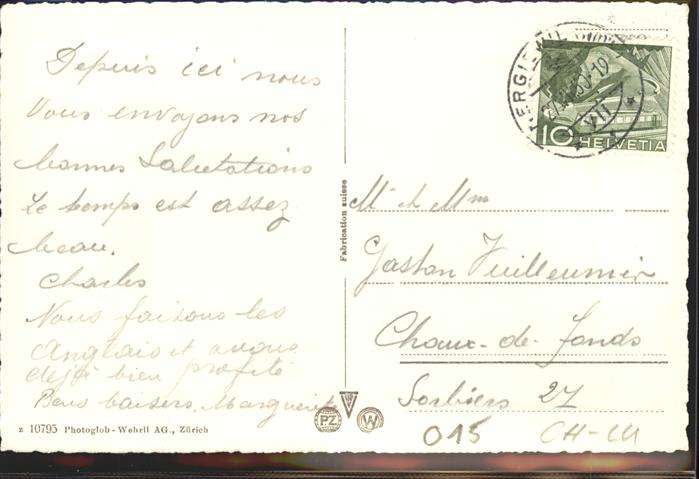 Depuis ici nous
Vous envoyons nos
bonnes Salutations
Le temps est assez
beau.
Charles
Nous faisons les
Anglais et avons
déjà bien profité
Bons baisers. Marguerite
z 10795 Photoglob-Wehrli AG., Zürich
Fabrication suisse
PZ
W
10 HELVETIA
VII
M et Mme
Gaston Vuilleumier
Chaux-de-fonds
Sorbiers 27
015 CH-LU